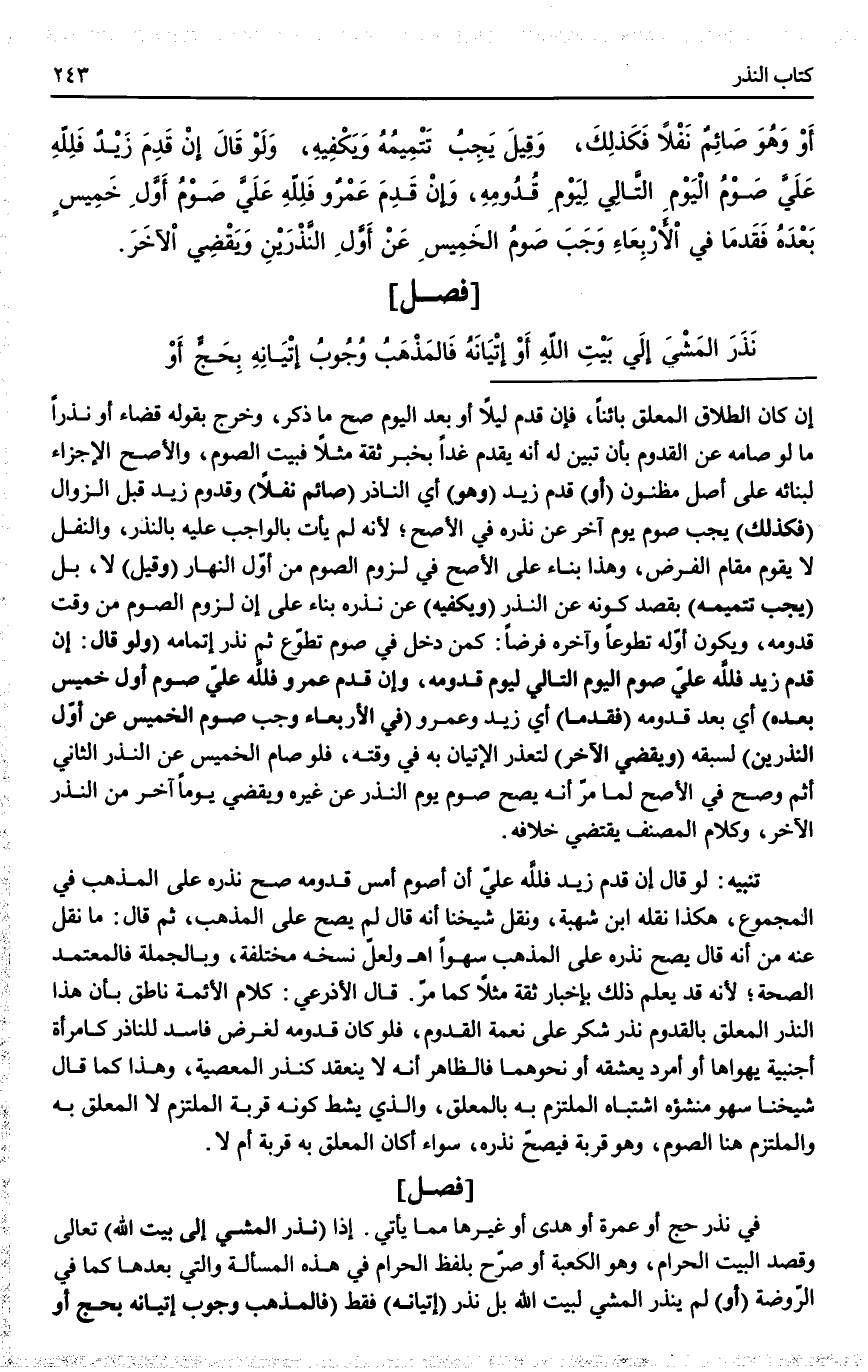 كتاب النذر ٢٤٣
أَوْ وَهُوَ صَائِمٌ نَفْلًا فَكَذلِكَ، وَقِيلَ يَجِبُ تَتْمِيمُهُ وَيَكْفِيهِ، وَلَوْ قَالَ إِنْ قَدِمَ زَيْدٌ فَلِلّهِ
عَلَيَّ صَوْمُ الْيَوْمِ التَّالِي لِيَوْمِ قُدُومِهِ، وَإِنْ قَدِمَ عَمْرٌو فَلِلّهِ عَلَيَّ صَوْمُ أَوَّلِ خَمِيسٍ
بَعْدَهُ فَقَدمَا في الْأَرْبِعَاءِ وَجَبَ صَومُ الخَمِيسِ عَنْ أَوَّلِ النَّذْرَيْنِ وَيَقْضِي اْلآخَرَ.
[فصل]
نَذَرَ المَشْيَ إِلَي بَيْتِ اللّهِ أَوْ إِتْيَانَهُ فَالمَذْهَبُ وُجُوبُ إِتْيَانِهِ بِحَجٍّ أَوْ
إن كان الطلاق المعلق بائناً، فإن قدم ليلًا أو بعد اليوم صح ما ذكر، وخرج بقوله قضاء أو نذراً
ما لو صامه عن القدوم بأن تبين له أنه يقدم غداً بخبر ثقة مثلًا فبيت الصوم، والأصح الإجزاء
لبنائه على أصل مظنون (أو) قدم زيد (وهو) أي الناذر (صائم نفلًا) وقدوم زيد قبل الزوال
(فكذلك) يجب صوم يوم آخر عن نذره في الأصح؛ لأنه لم يأت بالواجب عليه بالنذر، والنفل
لا يقوم مقام الفرض، وهذا بناء على الأصح في لزوم الصوم من أوّل النهار (وقيل) لا، بل
(يجب تتميمه) بقصد كونه عن النذر (ويكفيه) عن نذره بناء على إن لزوم الصوم من وقت
قدومه، ويكون أوّله تطوعاً وآخره فرضاً: كمن دخل في صوم تطوّع ثم نذر إتمامه (ولو قال: إن
قدم زيد فللّه عليّ صوم اليوم التالي ليوم قدومه، وإن قدم عمرو فللّه عليّ صوم أول خميس
بعده) أي بعد قدومه (فقدما) أي زيد وعمرو (في الأربعاء وجب صوم الخميس عن أوّل
النذرين) لسبقه (ويقضي الآخر) لتعذر الإتيان به في وقته، فلو صام الخميس عن النذر الثاني
أثم وصح في الأصح لما مرّ أنه يصح صوم يوم النذر عن غيره ويقضي يوماً آخر من النذر
الآخر، وكلام المصنف يقتضي خلافه.
تنبيه: لو قال إن قدم زيد فللّه عليّ أن أصوم أمس قدومه صح نذره على المذهب في
المجموع، هكذا نقله ابن شهبة، ونقل شيخنا أنه قال لم يصح على المذهب، ثم قال: ما نقل
عنه من أنه قال يصح نذره على المذهب سهواً اهـ ولعلّ نسخه مختلفة، وبالجملة فالمعتمد
الصحة؛ لأنه قد يعلم ذلك بإخبار ثقة مثلًا كما مرّ. قال الأذرعي: كلام الأئمة ناطق بأن هذا
النذر المعلق بالقدوم نذر شكر على نعمة القدوم، فلو كان قدومه لغرض فاسد للناذر كامرأة
أجنبية يهواها أو أمرد يعشقه أو نحوهما فالظاهر أنه لا ينعقد كنذر المعصية، وهذا كما قال
شيخنا سهو منشؤه اشتباه الملتزم به بالمعلق، والذي يشط كونه قربة الملتزم لا المعلق به
والملتزم هنا الصوم، وهو قربة فيصحّ نذره، سواء أكان المعلق به قربة أم لا.
[فصل]
في نذر حج أو عمرة أو هدى أو غيرها مما يأتي. إذا (نذر المشي إلى بيت الله) تعالى
وقصد البيت الحرام، وهو الكعبة أو صرّح بلفظ الحرام في هذه المسألة والتي بعدها كما في
الرّوضة (أو) لم ينذر المشي لبيت الله بل نذر (إتيانه) فقط (فالمذهب وجوب إتيانه بحج أو